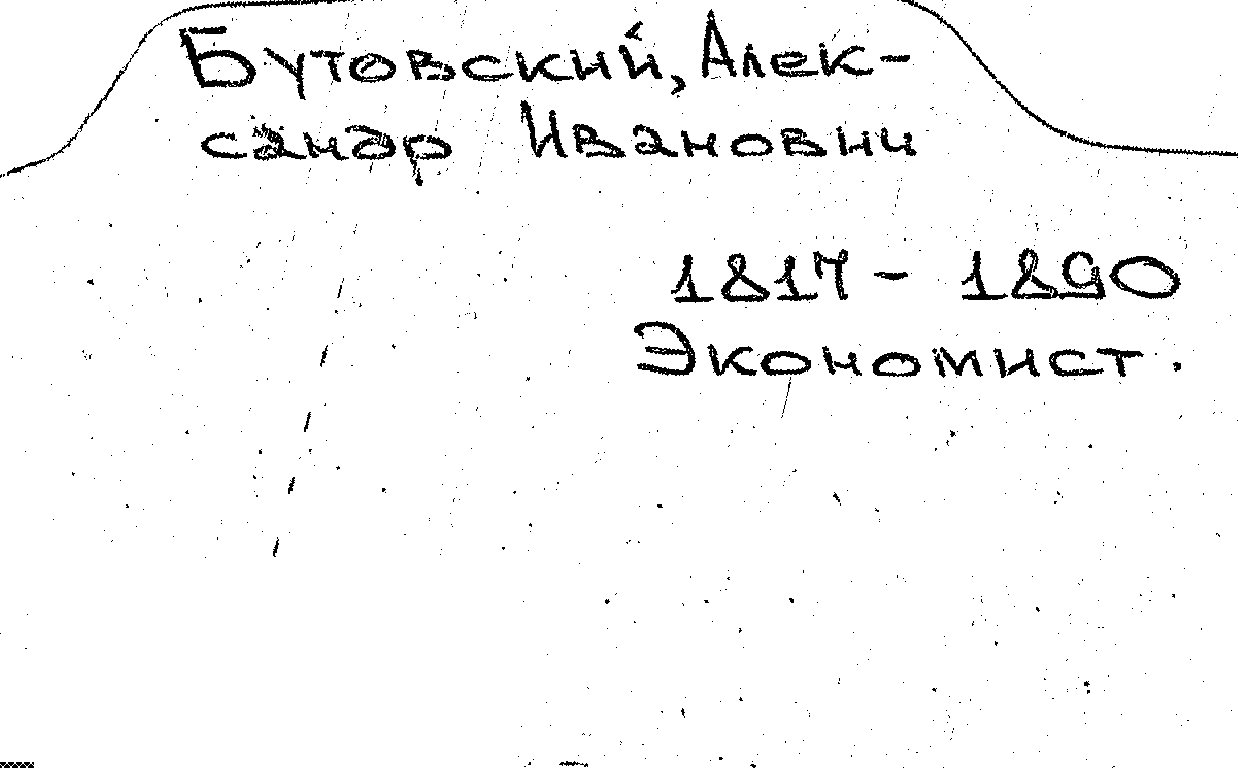 Бутовский, Алек-
сандр Иванович
1817 - 1890
Экономист.